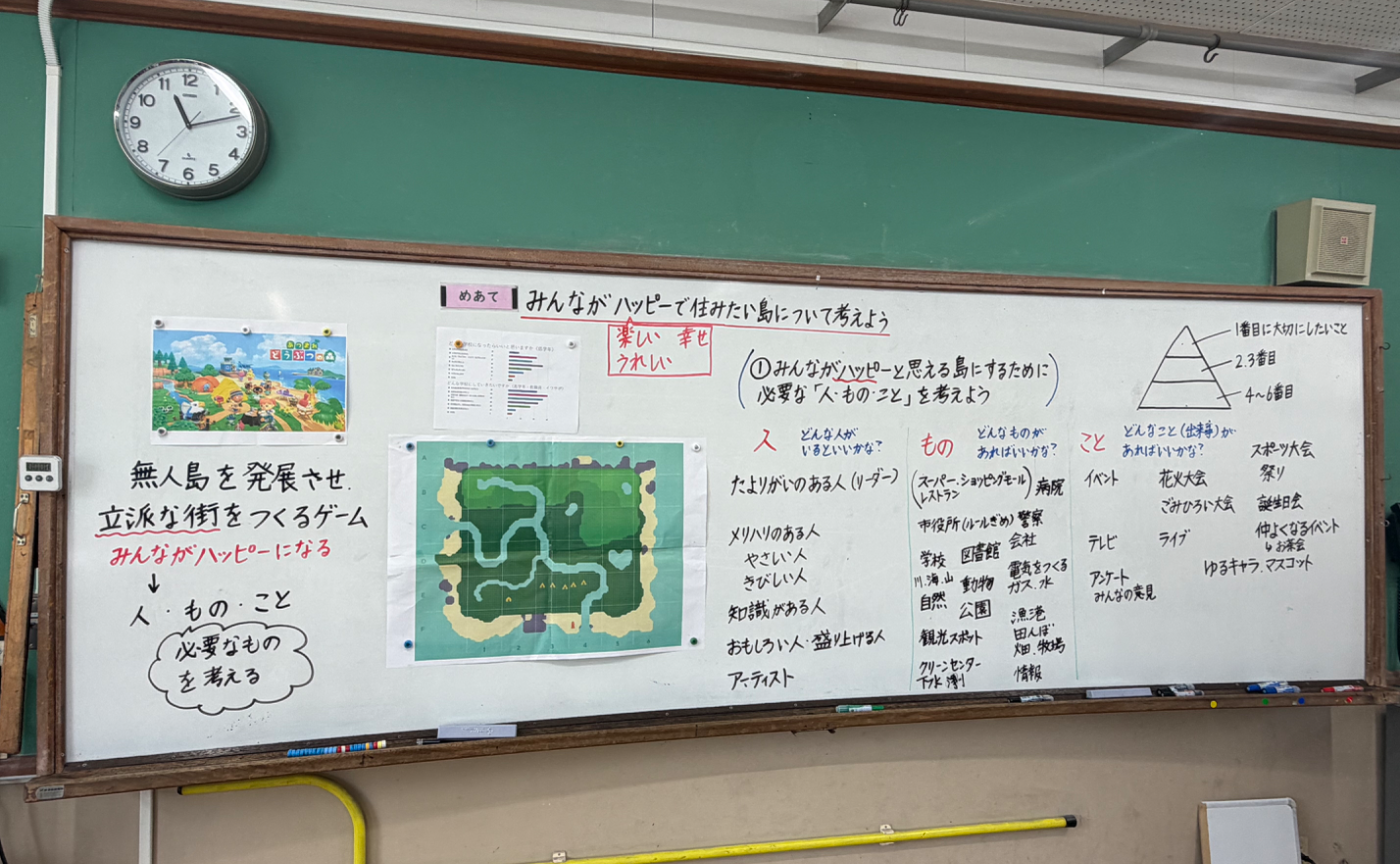 めあて
みんながハッピーで住みたい島について考えよう
楽しい 幸せ
うれしい
あつまれ
どうぶつの森
無人島を発展させ
立派な街をつくるゲーム
みんながハッピーになる
↓
人・もの・こと
必要なもの
を考える
①みんながハッピーと思える島にするために
必要な「人・もの・こと」を考えよう
1番目に大切にしたいこと
2.3番目
4〜6番目
人 どんな人が
いるといいかな?
たよりがいのある人(リーダー)
メリハリのある人
やさしい人
きびしい人
知識がある人
おもしろい人・盛り上げる人
アーティスト
もの どんなものが
あればいいかな?
(スーパー・ショッピングモール
レストラン) 病院
市役所(ルールぎめ) 警察
学校 図書館 会社
川、海、山
自然 動物 電気をつくる
ガス、水
公園 漁港
観光スポット 田んぼ
畑、牧場
クリーンセンター
下水 情報
こと どんなこと(出来事)が
あればいいかな?
イベント 花火大会 スポーツ大会
祭り
ごみひろい大会 誕生日会
テレビ ライブ 仲よくなるイベント
お茶会
ゆるキャラ、マスコット
アンケート
みんなの意見
12
1
2
3
4
5
6
7
8
9
10
11